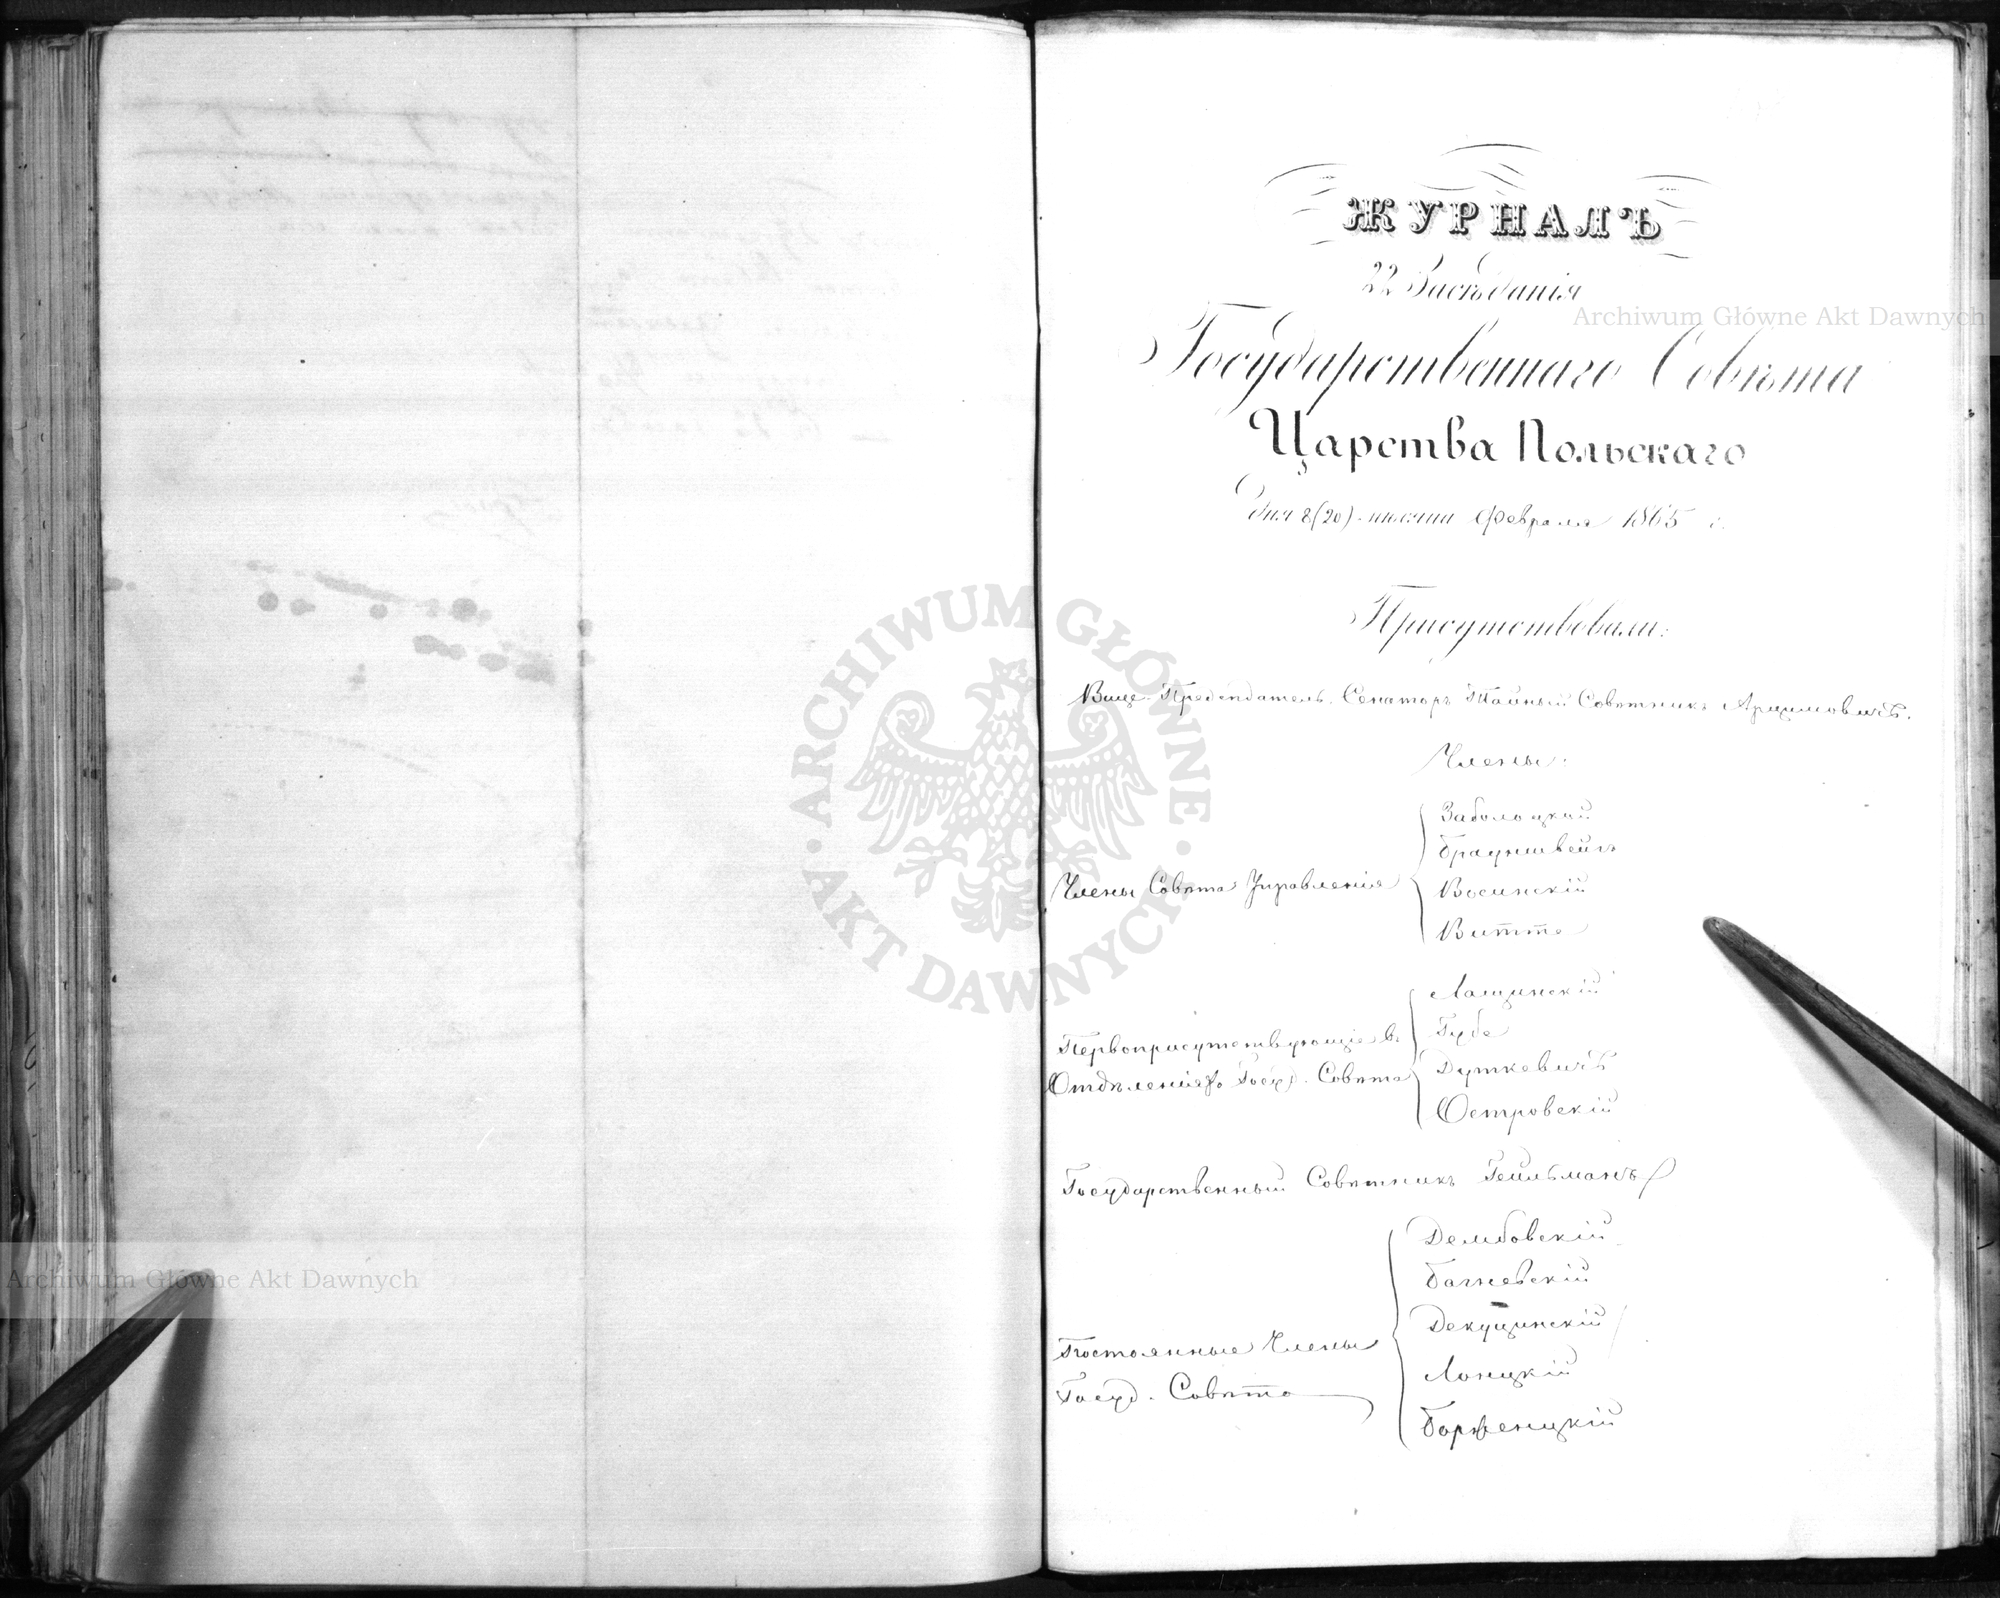 ЖУРНАЛЪ
22 Засѣданія
Государственнаго Совѣта
Царства Польскаго
Дня 8(20) мѣсяца Февраля 1865 г.
Присутствовали:
Вице-Предсѣдатель, Сенаторъ Тайный Совѣтникъ Арцимовичъ.
Члены:
Заболоцкій
Брауншвейгъ
Члены Совѣта Управленія
Восинскій
Витте
Лащинскій
Первоприсутствующіе въ
Губе
Отдѣленіяхъ Госуд. Совѣта
Дуткевичъ
Островскій
Государственный Совѣтникъ Гейльманъ
Дембовскій
Багневскій
Декуцинскій
Постоянные Члены
Лонцкій
Госуд. Совѣта
Борженцкій
Archiwum Główne Akt Dawnych
ARCHIWUM GŁÓWNE AKT DAWNYCH
Archiwum Główne Akt Dawnych